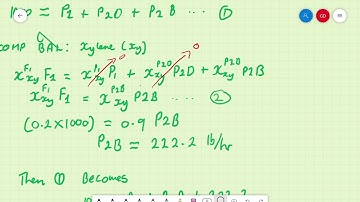 = P1 + P2D + P2B .... ①
COMP BAL: xylene (xy)
x_xy^F1 F1 = x_xy^P1 P1 + x_xy^P2D P2D + x_xy^P2B P2B
0 0
x_xy^F1 F1 = x_xy^P2B P2B .... ②
(0.2 x 1000) = 0.9 P2B
P2B = 222.2 lb/hr
Then ① Becomes